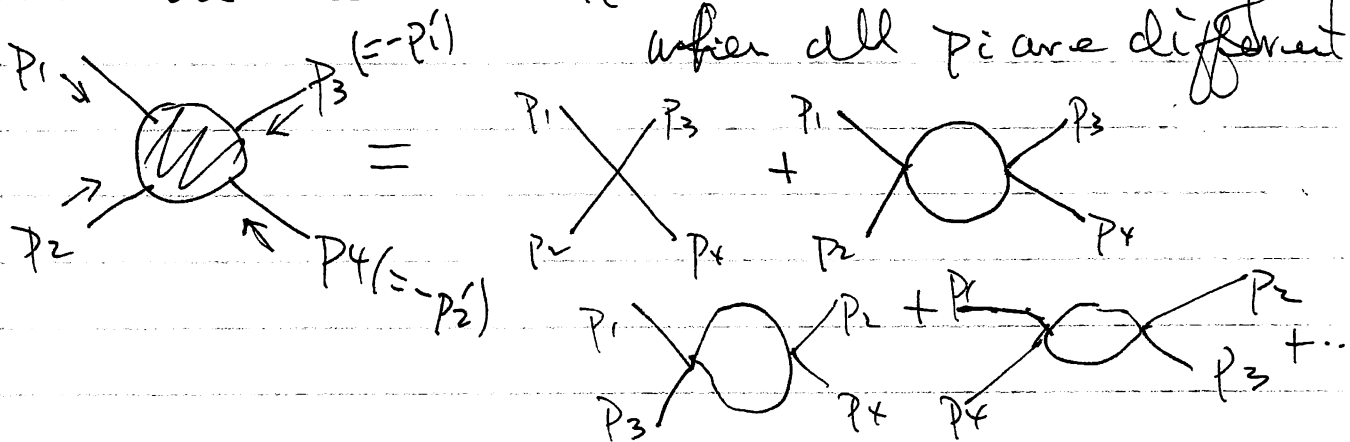 when all pi are different
p1 p3 (=-p1') p1 p3 p1 p3
= +
p2 p4 (=-p2') p2 p4 p2 p4
p1 p2 + p1 p2 + ..
p3 p4 p4 p3